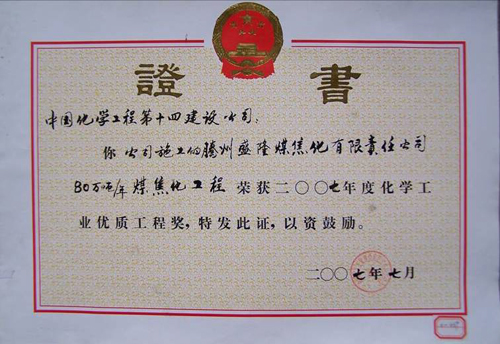 證書
中国化学工程第十四建设公司:
你公司施工的滕州盛隆煤焦化有限责任公司
80万吨/年煤焦化工程荣获二〇〇七年度化学工
业优质工程奖,特发此证,以资鼓励。
二〇〇七年七月